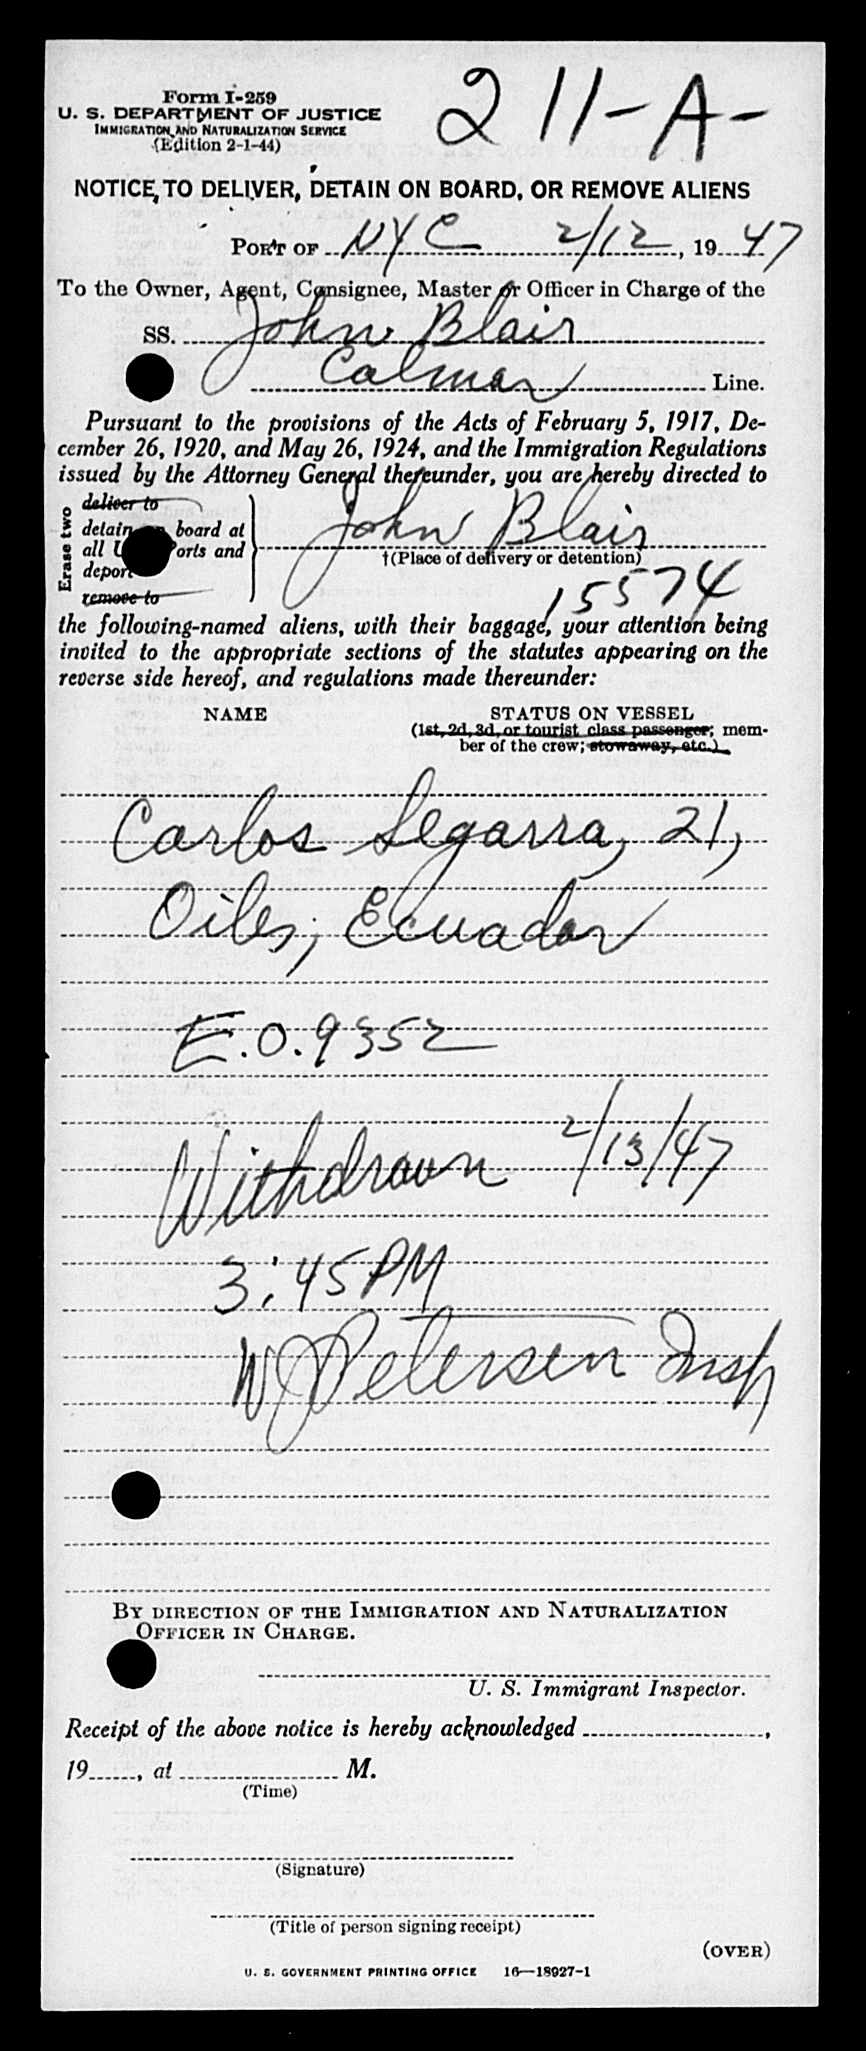 Form I-259
U. S. DEPARTMENT OF JUSTICE
IMMIGRATION AND NATURALIZATION SERVICE
(Edition 2-1-44)
211-A-
NOTICE TO DELIVER, DETAIN ON BOARD, OR REMOVE ALIENS
PORT OF NYC 2/12, 1947
To the Owner, Agent, Consignee, Master or Officer in Charge of the
SS. John Blair
Calmar Line.
Pursuant to the provisions of the Acts of February 5, 1917, De-
cember 26, 1920, and May 26, 1924, and the Immigration Regulations
issued by the Attorney General thereunder, you are hereby directed to
Erase two
deliver to
detain on board at
all U orts and
deport
remove to
John Blair
†(Place of delivery or detention)
15574
the following-named aliens, with their baggage, your attention being
invited to the appropriate sections of the statutes appearing on the
reverse side hereof, and regulations made thereunder:
NAME STATUS ON VESSEL
(1st, 2d, 3d, or tourist class passenger; mem-
ber of the crew; stowaway, etc.)
Carlos Segarra, 21,
Oiler, Ecuador
E.O. 9352
Withdrawn 2/13/47
3:45 PM
W J Petersen Insp
BY DIRECTION OF THE IMMIGRATION AND NATURALIZATION
OFFICER IN CHARGE.
U. S. Immigrant Inspector.
Receipt of the above notice is hereby acknowledged ,
19 , at M.
(Time)
(Signature)
(Title of person signing receipt)
(OVER)
U. S. GOVERNMENT PRINTING OFFICE 16—18927-1